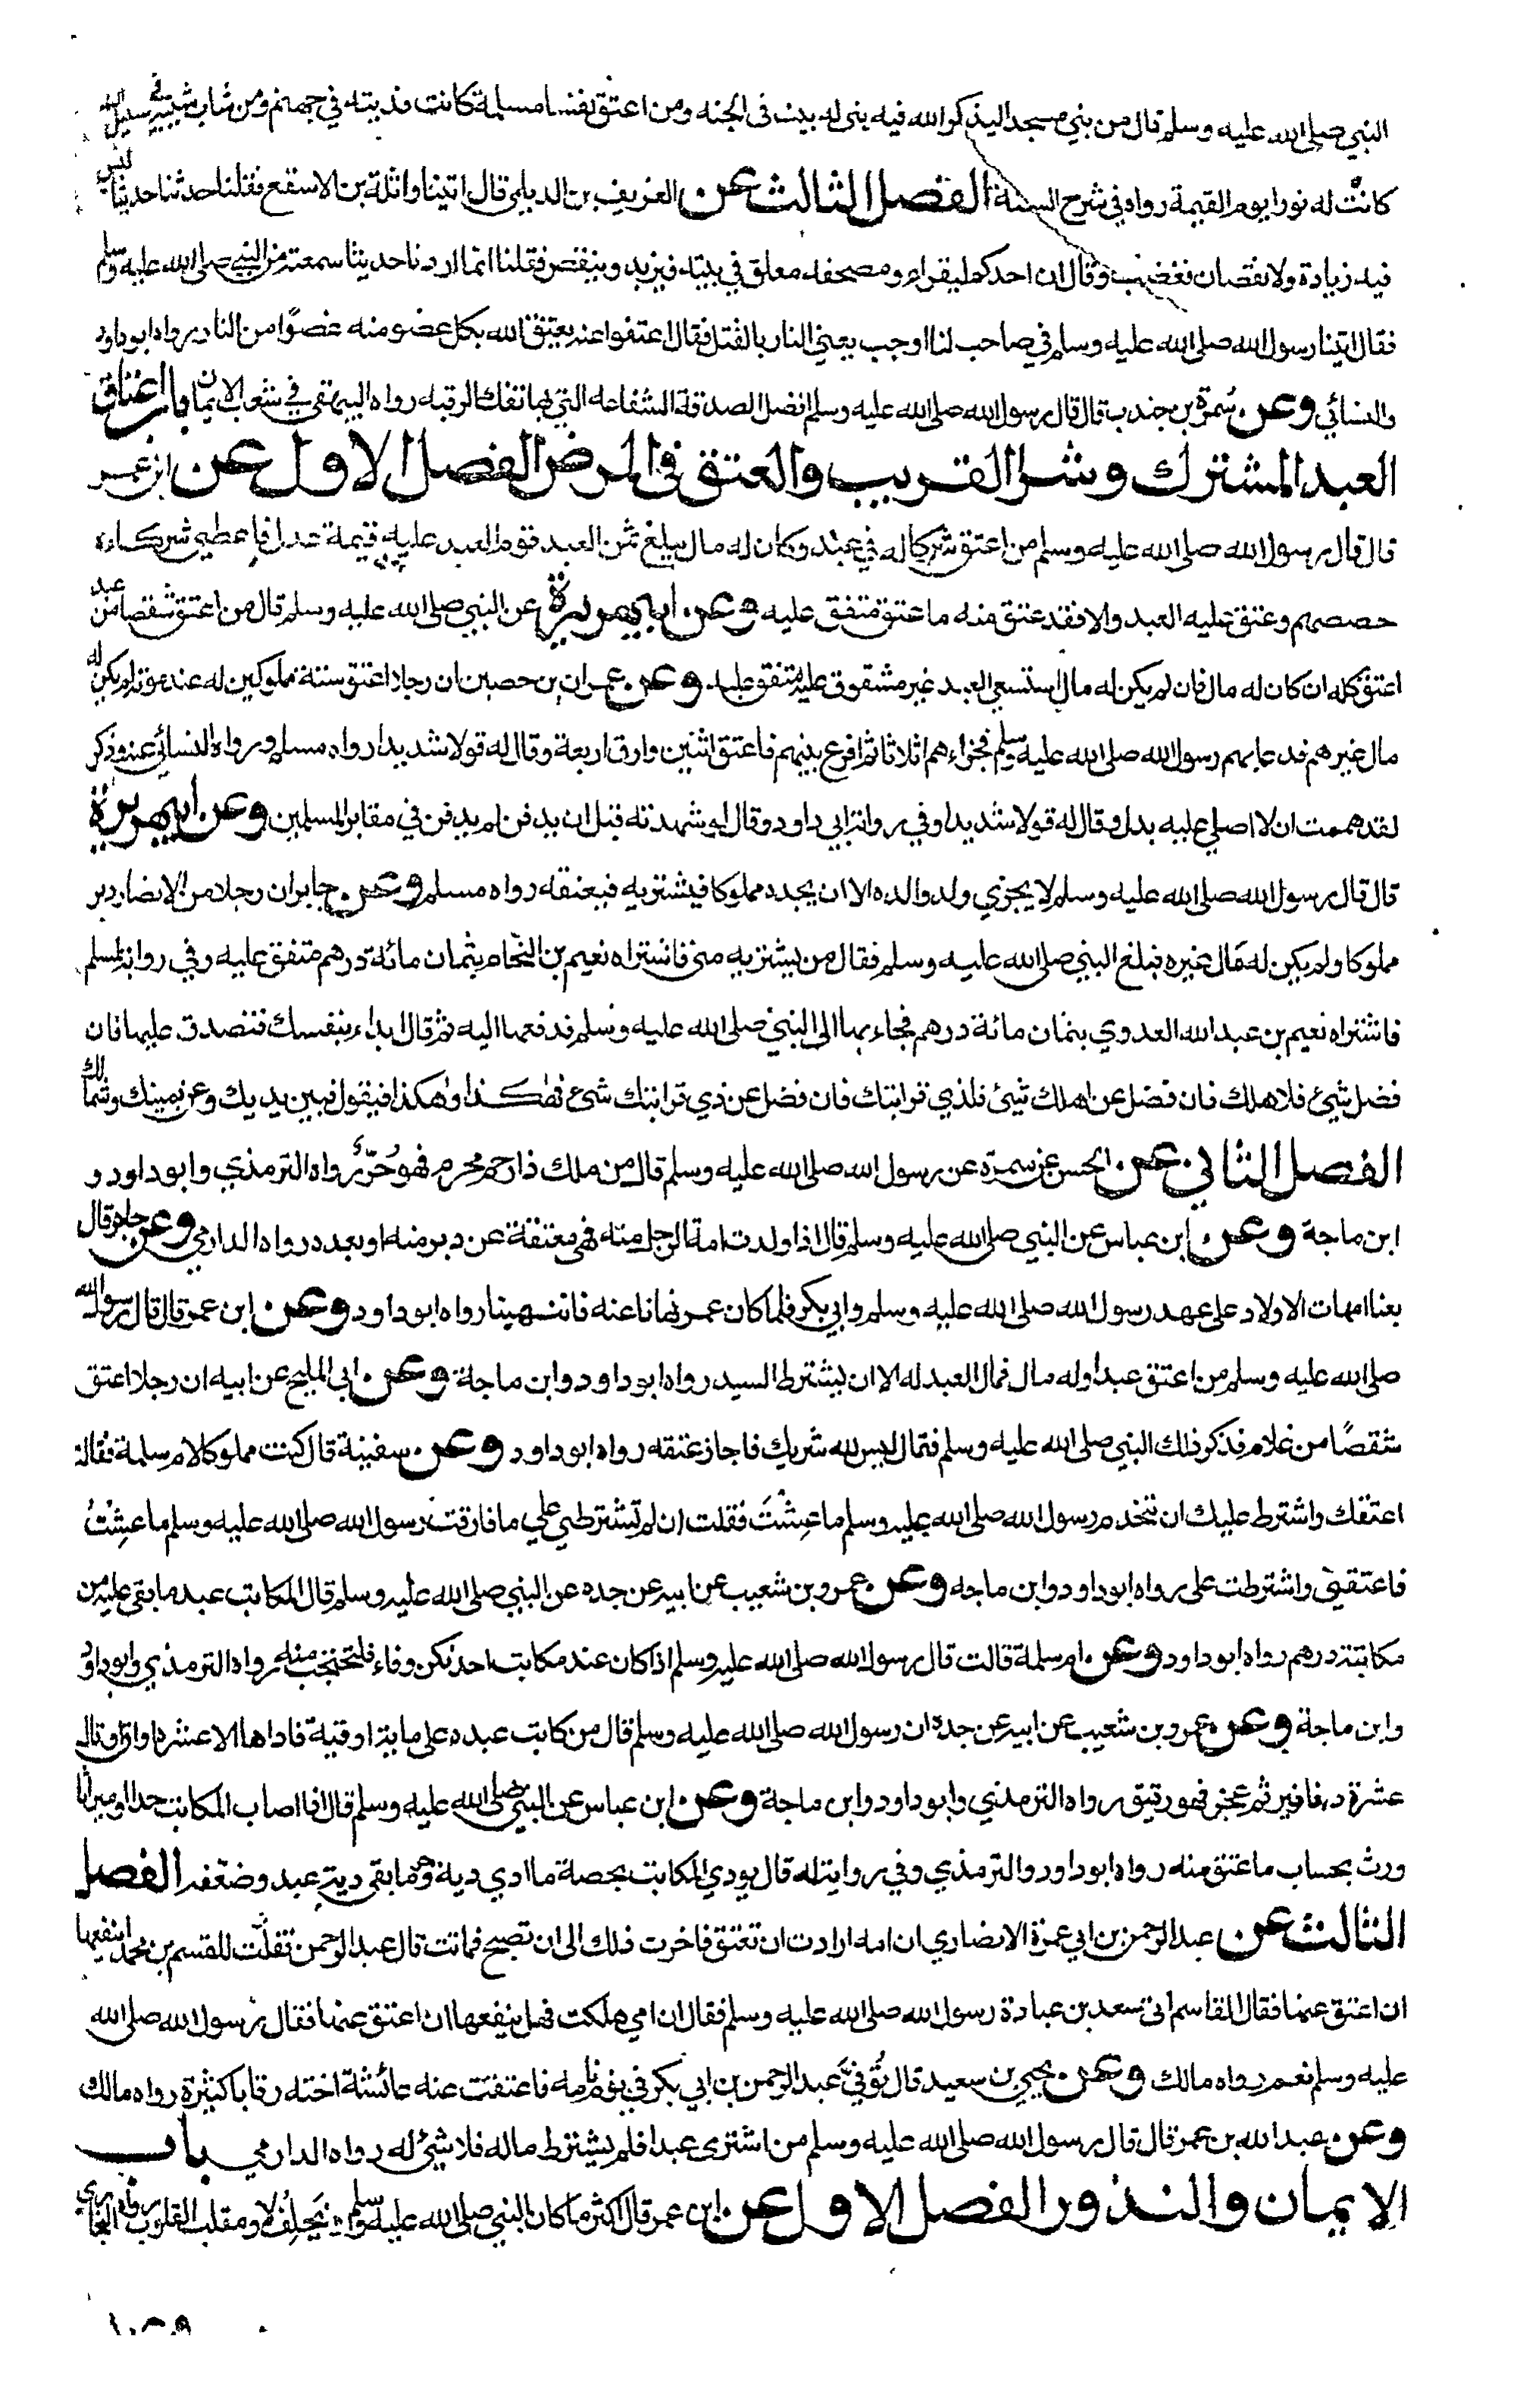 النبي صلى الله عليه وسلم قال من بني مسجدا ليذكر الله فيه بنى له بيت فى الجنه ومن اعتق نفسا مسلمة كانت فديته في جهنم ومن شاب شيبة في سبيل الله
كانت له نورا يوم القيمة رواه في شرح السنة الفصل الثالث عن الغريف بن الديلمي قال اتينا واثلة بن الاسقع فقلنا حدثنا حديثا ليس
فيه زيادة ولا نقصان فغضب وقال ان احدكم ليقراء ومصحفه معلق في بيته فيزيد وينقص فقلنا انما اردنا حديثا سمعته من النبي صلى الله عليه وسلم
فقال اتينا رسول الله صلى الله عليه وسلم في صاحب لنا اوجب يعني النار بالقتل فقال اعتقوا عنه يعتق الله بكل عضو منه عضوًا من النار رواه ابو داود
والنسائي وعن سُمرة بن جندب قال قال رسول الله صلى الله عليه وسلم افضل الصدقة الشفاعه التي بها تفك الرقبه رواه البيهقي في شعب الايمان باب اعتاق
العبد المشترك وشرا القريب والعتق في المرض الفصل الاول عن ابن عمر
قال قال رسول الله صلى الله عليه وسلم من اعتق شركا له في عبد وكان له مال يبلغ ثمن العبد قوم العبد عليه قيمة عدل فاعطي شركاءه
حصصهم وعتق عليه العبد والا فقد عتق منه ما عتق متفق عليه وعن ابي هريرة عن النبي صلى الله عليه وسلم قال من اعتق شقصا من عبد
اعتق كله ان كان له مال فان لم يكن له مال استسعي العبد غير مشقوق عليه متفق عليه وعن عمران بن حصين ان رجلا اعتق ستة مملوكين له عند موته لم يكن له
مال غيرهم فدعا بهم رسول الله صلى الله عليه وسلم فجزاءهم اثلاثا ثم اقرع بينهم فاعتق اثنين وارق اربعة وقال له قولا شديدا رواه مسلم ورواه النسائي عنه وذكر
لقد هممت ان لا اصلي عليه بدل وقال له قولا شديدا وفي رواية ابي داود وقال لو شهدته قبل ان يدفن لم يدفن في مقابر المسلمين وعن ابي هريرة
قال قال رسول الله صلى الله عليه وسلم لا يجزي ولد والده الا ان يجده مملوكا فيشتريه فيعتقه رواه مسلم وعن جابر ان رجلا من الانصار دبر
مملوكا ولم يكن له مال غيره فبلغ النبي صلى الله عليه وسلم فقال من يشتريه مني فاشتراه نعيم بن النحام بثمان مائة درهم متفق عليه وفي رواية لمسلم
فاشتراه نعيم بن عبد الله العدوي بثمان مائة درهم فجاء بها الى النبي صلى الله عليه وسلم فدفعها اليه ثم قال ابداء بنفسك فتصدق عليها فان
فضل شيئ فلاهلك فان فضل عن اهلك شيئ فلذي قرابتك فان فضل عن ذي قرابتك شيئ فهكذا وهكذا فيقول فبين يديك وعن يمينك وشمالك
الفصل الثاني عن الحسن عن سمرة عن رسول الله صلى الله عليه وسلم قال من ملك ذا رحم محرم فهو حُرّ رواه الترمذي وابو داود و
ابن ماجة وعن ابن عباس عن النبي صلى الله عليه وسلم قال اذا ولدت امة الرجل منه فهي معتقة عن دبر منه او بعده رواه الدارمي وعن جابر قال
بعنا امهات الاولاد على عهد رسول الله صلى الله عليه وسلم وابي بكر فلما كان عمر نهانا عنه فانتهينا رواه ابو داود وعن ابن عمر قال قال رسول الله
صلى الله عليه وسلم من اعتق عبدا وله مال فمال العبد له الا ان يشترط السيد رواه ابو داود وابن ماجة وعن ابي المليح عن ابيه ان رجلا اعتق
شقصًا من غلام فذكر ذلك النبي صلى الله عليه وسلم فقال ليس لله شريك فاجاز عتقه رواه ابو داود وعن سفينة قال كنت مملوكا لام سلمة فقالت
اعتقك واشترط عليك ان تخدم رسول الله صلى الله عليه وسلم ما عشتَ فقلت ان لم تشترطي علي ما فارقت رسول الله صلى الله عليه وسلم ما عِشْتُ
فاعتقيني واشترطت على رواه ابو داود وابن ماجه وعن عمرو بن شعيب عن ابيه عن جده عن النبي صلى الله عليه وسلم قال المكاتب عبد ما بقي عليه من
مكاتبته درهم رواه ابو داود وعن ام سلمة قالت قال رسول الله صلى الله عليه وسلم اذا كان عند مكاتب احدكن وفاء فلتحتجب منه رواه الترمذي وابو داود
وابن ماجة وعن عمرو بن شعيب عن ابيه عن جده ان رسول الله صلى الله عليه وسلم قال من كاتب عبده على ماية اوقية فاداها الا عشر اواق او قال
عشرة دنانير ثم عجز فهو رقيق رواه الترمذي وابو داود وابن ماجة وعن ابن عباس عن النبي صلى الله عليه وسلم قال اذا اصاب المكاتب حدا او ميراثا
ورث بحساب ما عتق منه رواه ابو داود والترمذي وفي رواية له قال يودي المكاتب بحصة ما ادي دية حر وما بقي دية عبد وضعفه الفصل
الثالث عن عبد الرحمن بن ابي عمرة الانصاري ان امه ارادت ان تعتق فاخرت ذلك الى ان تصبح فماتت قال عبد الرحمن فقلت للقسم بن محمد اينفعها
ان اعتق عنها فقال القاسم اتى سعد بن عبادة رسول الله صلى الله عليه وسلم فقال ان امي هلكت فهل ينفعها ان اعتق عنها فقال رسول الله صلى الله
عليه وسلم نعم رواه مالك وعن يحيي بن سعيد قال تُوفيَّ عبد الرحمن بن ابي بكر في نوم نامه فاعتقت عنه عائشة اخته رقابا كثيرة رواه مالك
وعن عبد الله بن عمر قال قال رسول الله صلى الله عليه وسلم من اشترى عبدا فلم يشترط ماله فلا شيئ له رواه الدارمي باب
الايمان والنذور الفصل الاول عن ابن عمر قال اكثر ما كان النبي صلى الله عليه وسلم يَحلِفُ لا ومقلب القلوب رواه البخاري